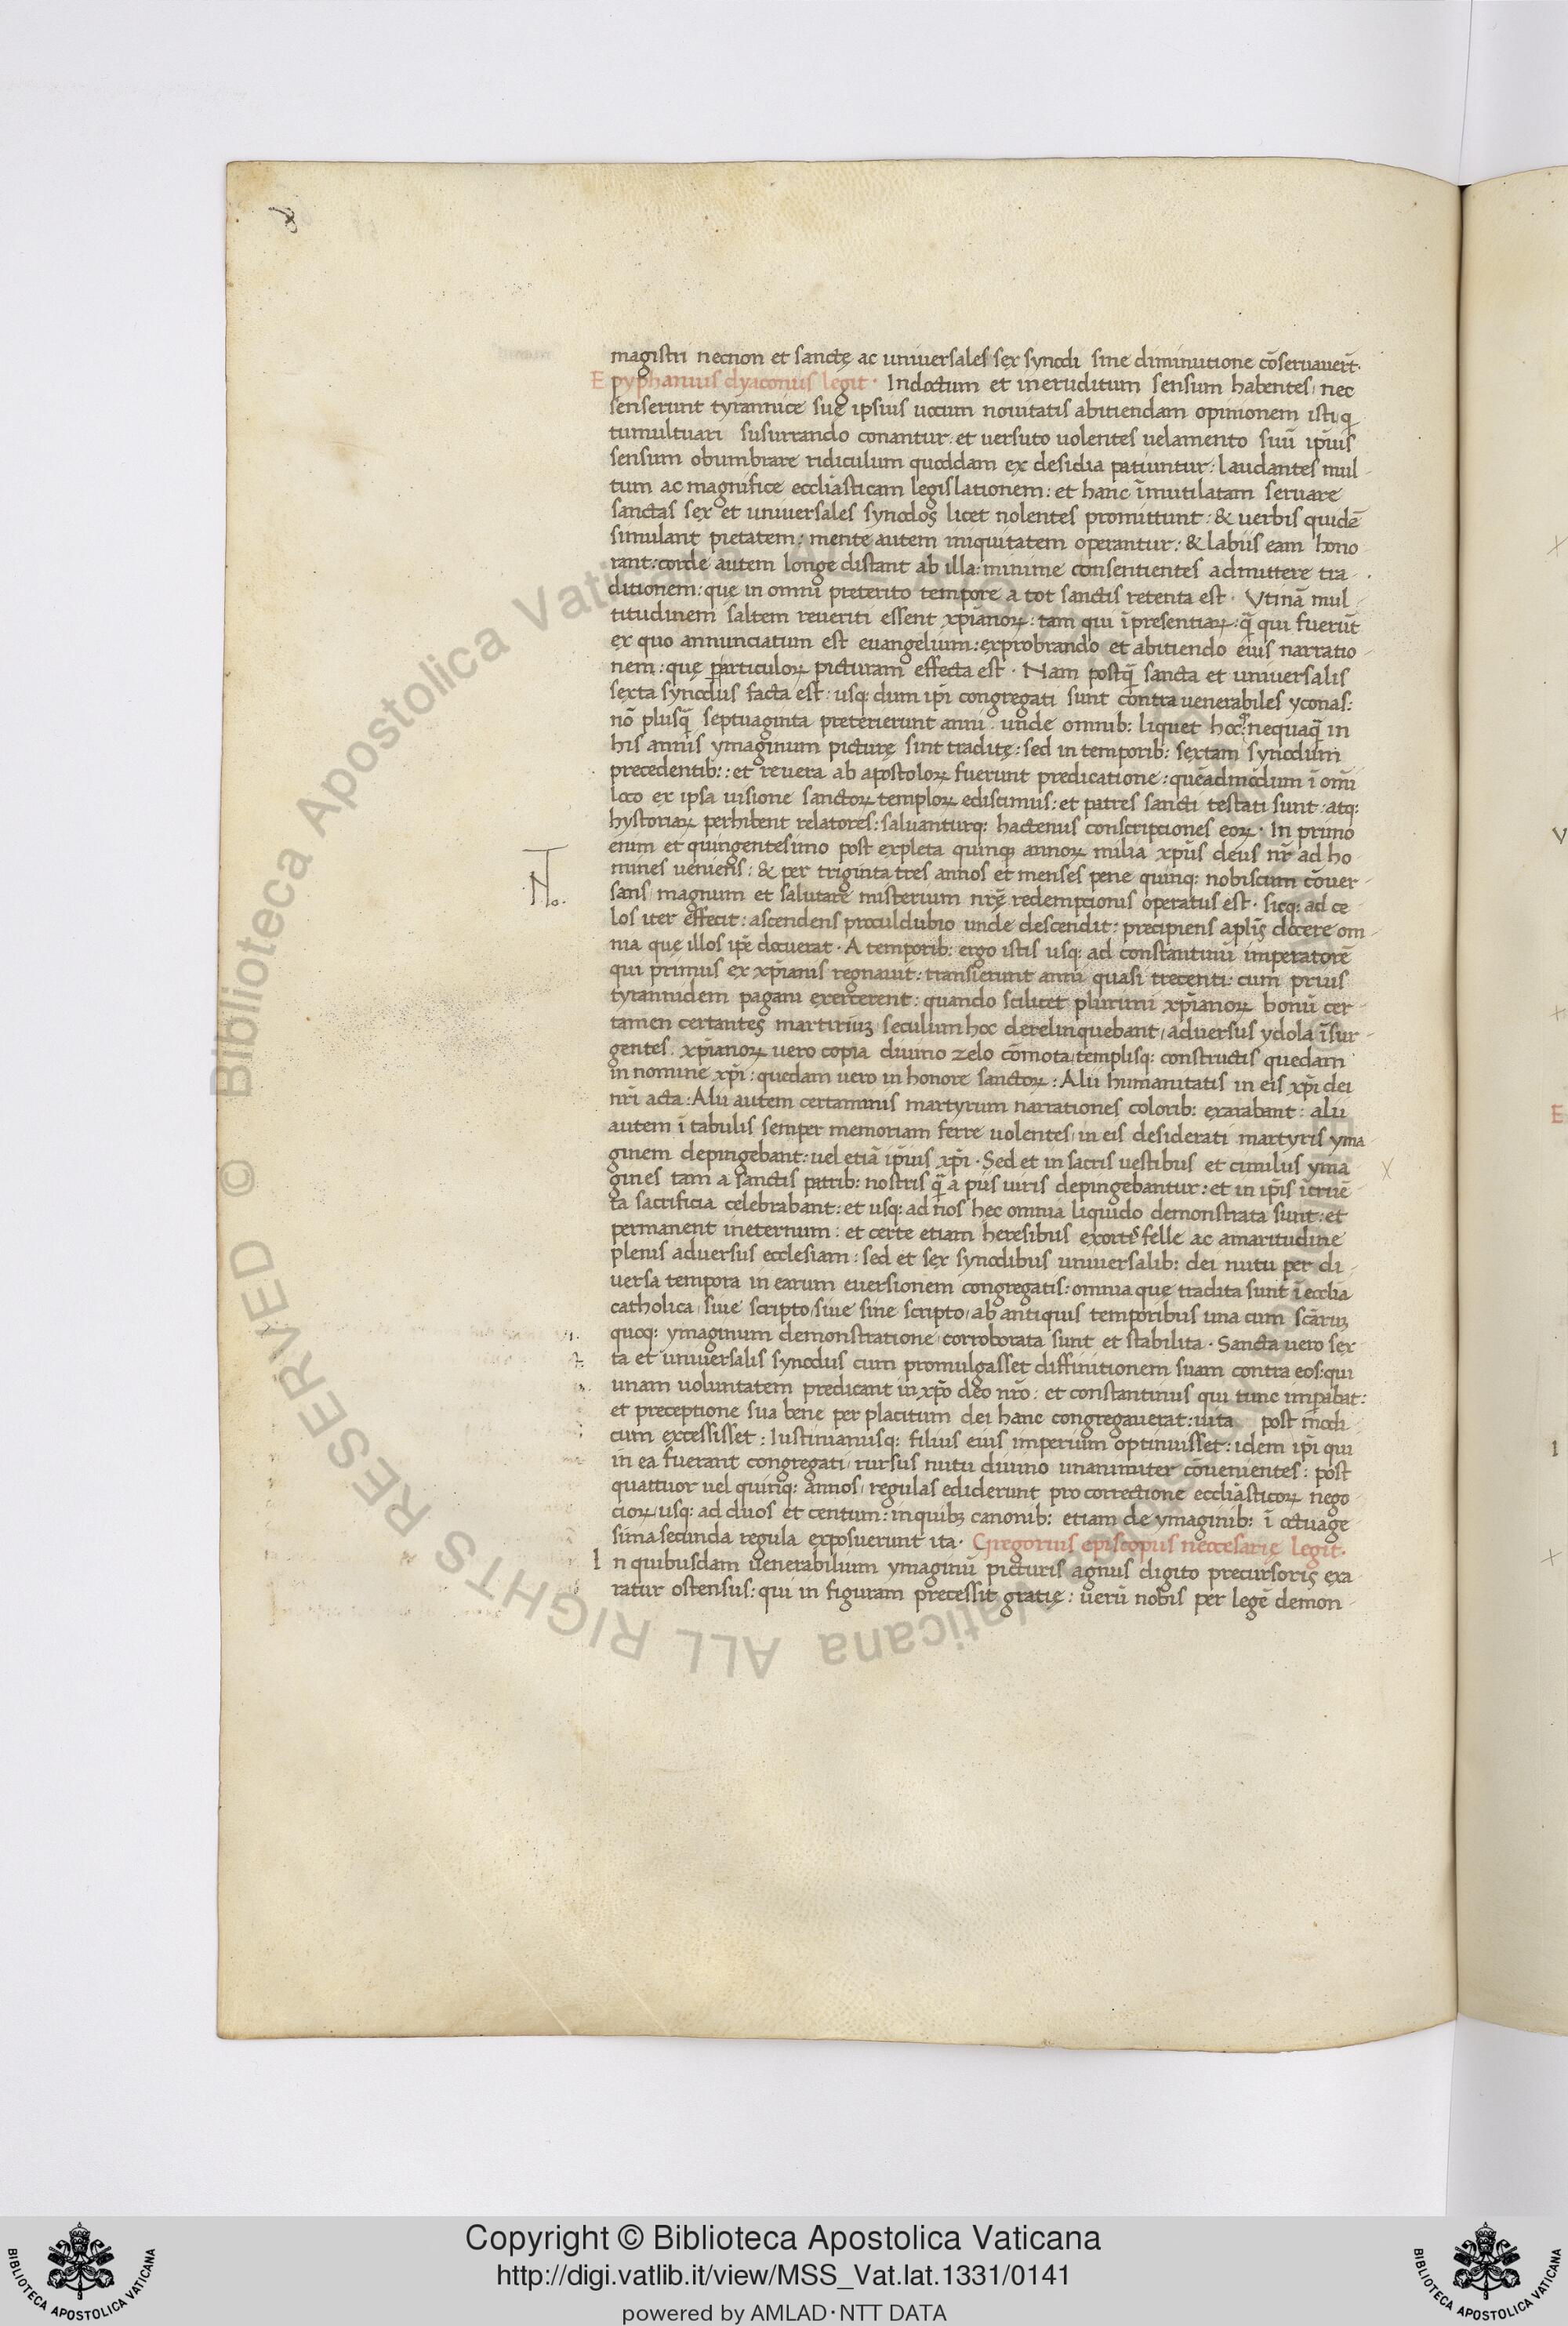 magistri necnon et sanctę ac uniuersales sex synodi sine diminutione cõseruauerт̃·
Epyphanius dyaconus legit· Indoctum et ineruditum sensum habentes, nec
senserunt tyrannice suę ipsius uocum nouitatis abitiendam opinionem isti q̣
tumultuari susurrando conantur: et uersuto uolentes uelamento suũ ip̃ius
sensum obumbrare ridiculum quoddam ex desidia patiuntur: laudantes mul-
tum ac magnifice eccliãsticam legislationem: et hanc ĩmutilatam seruare
sanctas sex et uniuersales synodos licet nolentes promittunt: & uerbis quidẽ
simulant pietatem: mente autem iniquitatem operantur: & labiis eam hono
rant: corde autem longe distant ab illa: minime consentientes admittere tra-
ditionem: quę in omni preterito tempore a tot sanctis retenta est· Vtinã mul-
titudinem saltem reueriti essent xp̃ianoꝝ: tam qui ĩ presentiaꝝ: q̃ qui fuerũt
ex quo annunciatum est euangelium: exprobrando et abitiendo eius narratio-
nem: quę particuloꝝ picturam effecta est· Nam postq̃ sancta et uniuersalis
sexta synodus facta est: usq: dum ip̃i congregati sunt contra uenerabiles yconas:
nõ plusq̃ septuaginta preterierunt anni· unde omnib: liquet hoc: nequaq̃ in
his annis ymaginum picturę sint traditę: sed in temporib: sextam synodum
precedentib:: et reuera ab apostoloꝝ fuerunt predicatione: quẽadmodum ĩ om̃i
loco ex ipsa uisione sanctoꝝ temploꝝ ediscimus: et patres sancti testati sunt: atq:
hystoriaꝝ perhibent relatores: saluanturq: hactenus conscriptiones eoꝝ· In primo
enim et quingentesimo post expleta quinq: annoꝝ milia xp̃us deus nr̃ ad ho-
mines ueniens: & per triginta tres annos et menses pene quinq: nobiscum cõuer-
sans magnum et salutare misterium nr̃ę redemptionis operatus est· sicq: ad ce-
los iter effecit: ascendens proculdubio unde descendit: precipiens apl̃is docere om-
nia que illos ip̃e docuerat· A temporib: ergo istis usq: ad constantinũ imperatorẽ
qui primus ex xp̃ianis regnauit: transierunt anni quasi trecenti: cum prius
tyrannidem pagani exercerent: quando scilicet plurimi xp̃ianoꝝ bonũ cer-
tamen certantes martiriuꝫ seculum hoc derelinquebant, aduersus ydola ĩsur-
gentes· xp̃ianoꝝ uero copia diuino zelo cõmota, templisq: constructis quedam
in nomine xp̃i: quedam uero in honore sanctoꝝ: Alii humanitatis in eis xp̃i dei
nr̃i acta: Alii autem certaminis martyrum narrationes colorib: exarabant: alii
autem ĩ tabulis semper memoriam ferre uolentes, in eis desiderati martyris yma
ginem depingebant: uel etiã ip̃ius xp̃i· Sed et in sacris uestibus et cimilus yma
gines tam a sanctis patrib: nostris q̃ a piis uiris depingebantur: et in ip̃is ĩcruẽ-
ta sacrificia celebrabant: et usq: ad nos hec omnia liquido demonstrata sunt: et
permanent ineternum: et certe etiam heresibus exortis felle ac amaritudine
plenis aduersus ecclesiam: sed et sex synodibus uniuersalib: dei nutu per di-
uersa tempora in earum euersionem congregatis: omnia que tradita sunt ĩ ecclia
catholica, siue scripto, siue sine scripto, ab antiquis temporibus una cum scãruꝫ
quoq: ymaginum demonstratione corroborata sunt et stabilita· Sancta uero sex-
ta et uniuersalis synodus cum promulgasset diffinitionem suam contra eos: qui
unam uoluntatem predicant in xp̃o deo nr̃o: et constantinus qui tunc imꝑabat:
et preceptione sua bene per placitum dei hanc congregauerat: uita post modi-
cum excessisset: Iustinianusq: filius eius imperium optinuisset: idem ip̃i qui
in ea fuerant congregati, rursus nutu diuino unanimiter cõuenientes: post
quattuor uel quinq: annos, regulas ediderunt pro correctione eccliãsticoꝝ nego
cioꝝ usq: ad duos et centum: in quibꝫ canonib: etiam de ymaginib: ĩ octuage
sima secunda regula exposuerunt ita· Gregorius episcopus neocesarię legit·
In quibusdam uenerabilium ymaginũ picturis agnus digito precursoris exa
ratur ostensus: qui in figuram precessit gratię: uerũ nobis per legẽ demon-
No.
Copyright © Biblioteca Apostolica Vaticana
http://digi.vatlib.it/view/MSS_Vat.lat.1331/0141
powered by AMLAD·NTT DATA
BIBLIOTECA APOSTOLICA VATICANA
BIBLIOTECA APOSTOLICA VATICANA
© Biblioteca Apostolica Vaticana ALL RIGHTS RESERVED